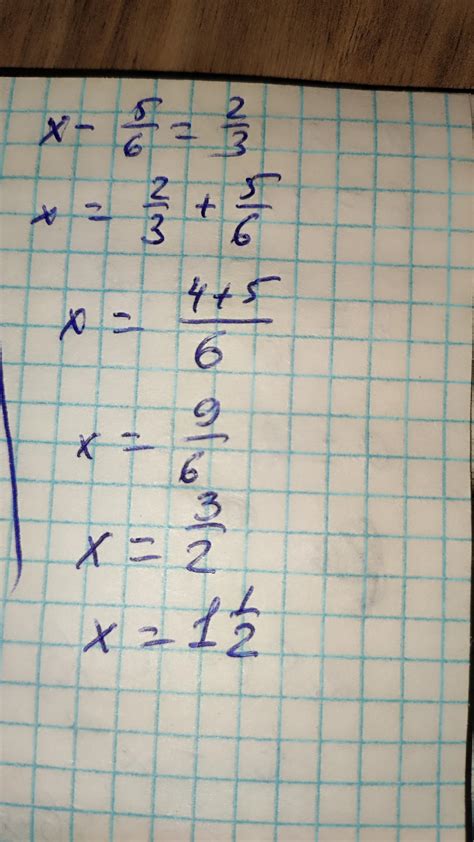 x - 5/6 = 2/3
x = 2/3 + 5/6
x = 4+5/6
x = 9/6
x = 3/2
x = 1 1/2